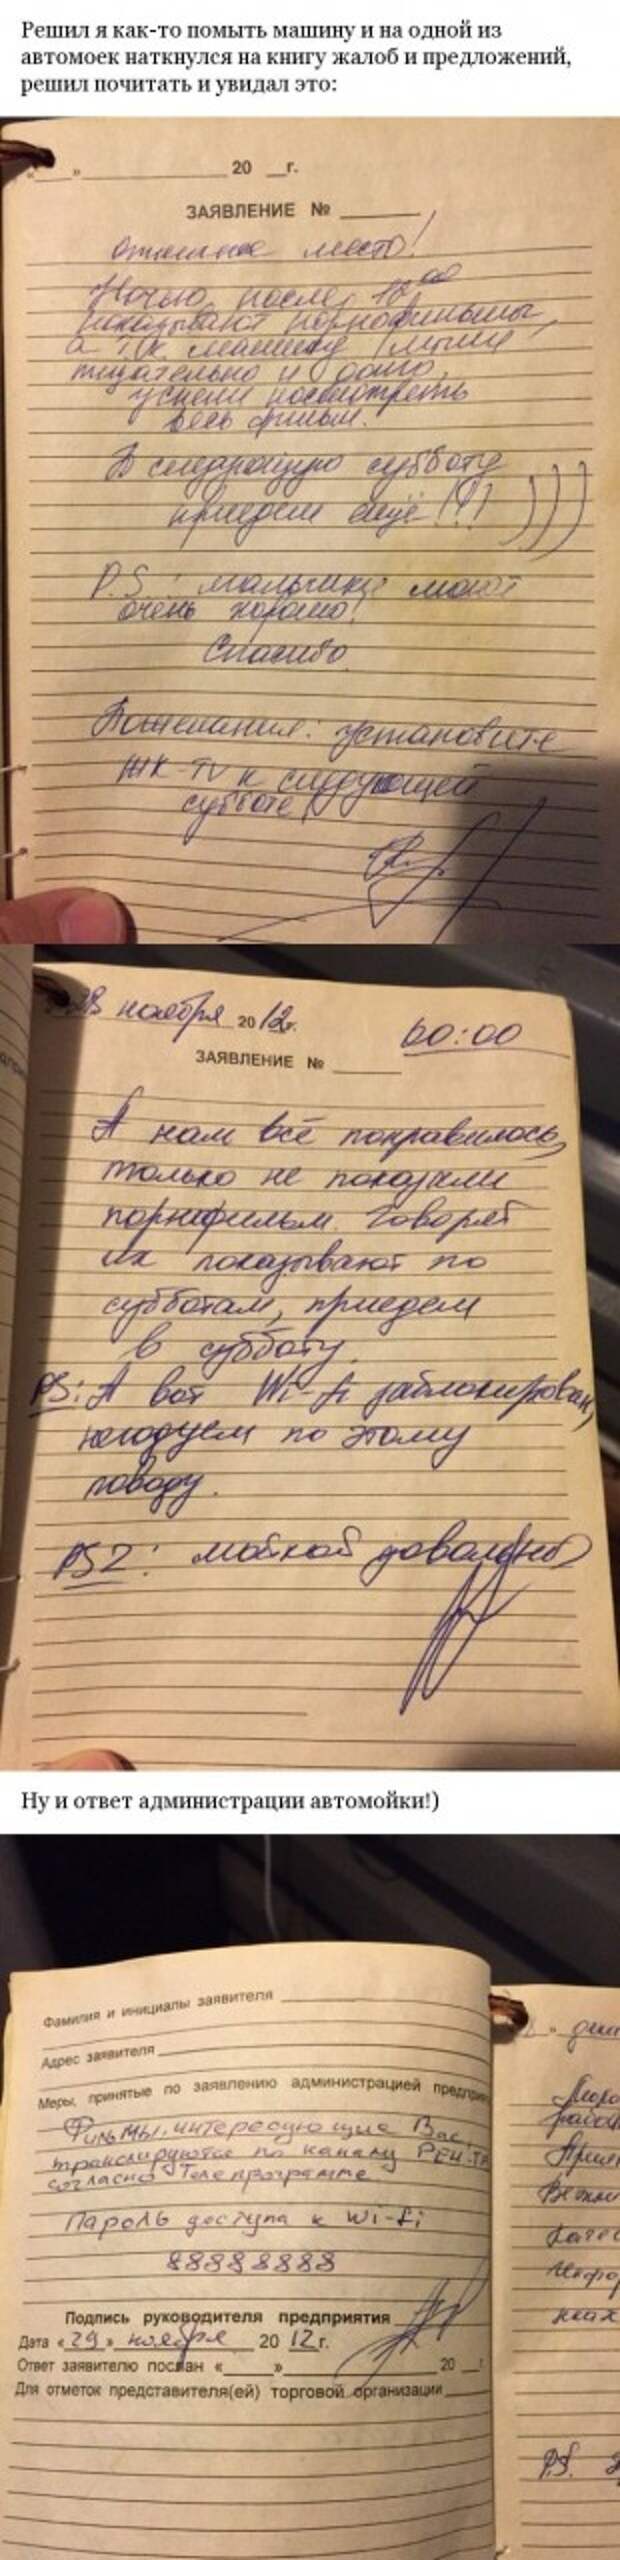 Решил я как-то помыть машину и на одной из
автомоек наткнулся на книгу жалоб и предложений,
решил почитать и увидал это:
« » 20 г.
ЗАЯВЛЕНИЕ №
Отличное место!
Ночью, после 00
показывают порнофильмы,
а т.к. машину мыли
тщательно и долго,
успели посмотреть
весь фильм.
В следующую субботу
приедем ещё (!!) )))
P.S.: мальчики моют
очень хорошо!
Спасибо
Пожелания: установите
ЖК-TV к следующей
субботе!
28 ноября 2012г. 00:00
ЗАЯВЛЕНИЕ №
А нам всё понравилось,
только не показали
порнофильм. Говорят
их показывают по
субботам, приедем
в субботу.
PS: А вот Wi-fi заблокирован,
негодуем по этому
поводу.
PS2: мойкой довольны
Ну и ответ администрации автомойки!)
Фамилия и инициалы заявителя
Адрес заявителя
Меры, принятые по заявлению администрацией предприя
Фильмы, интересующие Вас,
транслируются по каналу РЕН-ТВ
согласно Телепрограмме
Пароль доступа к Wi-fi
88888888
Подпись руководителя предприятия
Дата «29» ноября 2012г.
Ответ заявителю послан « » 20 г.
Для отметок представителя(ей) торговой организации
P.S.